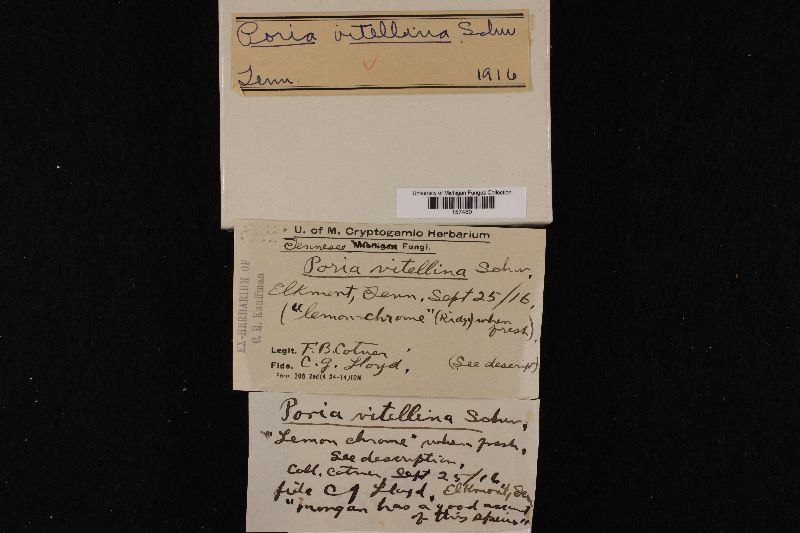 Poria vitellina Schw
Tenn. 1916
University of Michigan Fungus Collection
157480
U. of M. Cryptogamic Herbarium
Tennesee Michigan Fungi.
Poria vitellina Schw,
Elkmont, Tenn. Sept 25/16,
("lemon-chrome" (Ridg) when
fresh).
Legit. F.B. Cotner,
Fide. C.G. Lloyd, (See descript)
Form 200 2ed(4-24-14)10M
EX-HERBARIUM OF
C. H. Kauffman
Poria vitellina Schw,
"Lemon chrome" when fresh,
See description,
Coll. Cotner Sept 25/16,
fide C G Lloyd, Elkmont, Tenn
"Morgan has a good account
of this species"